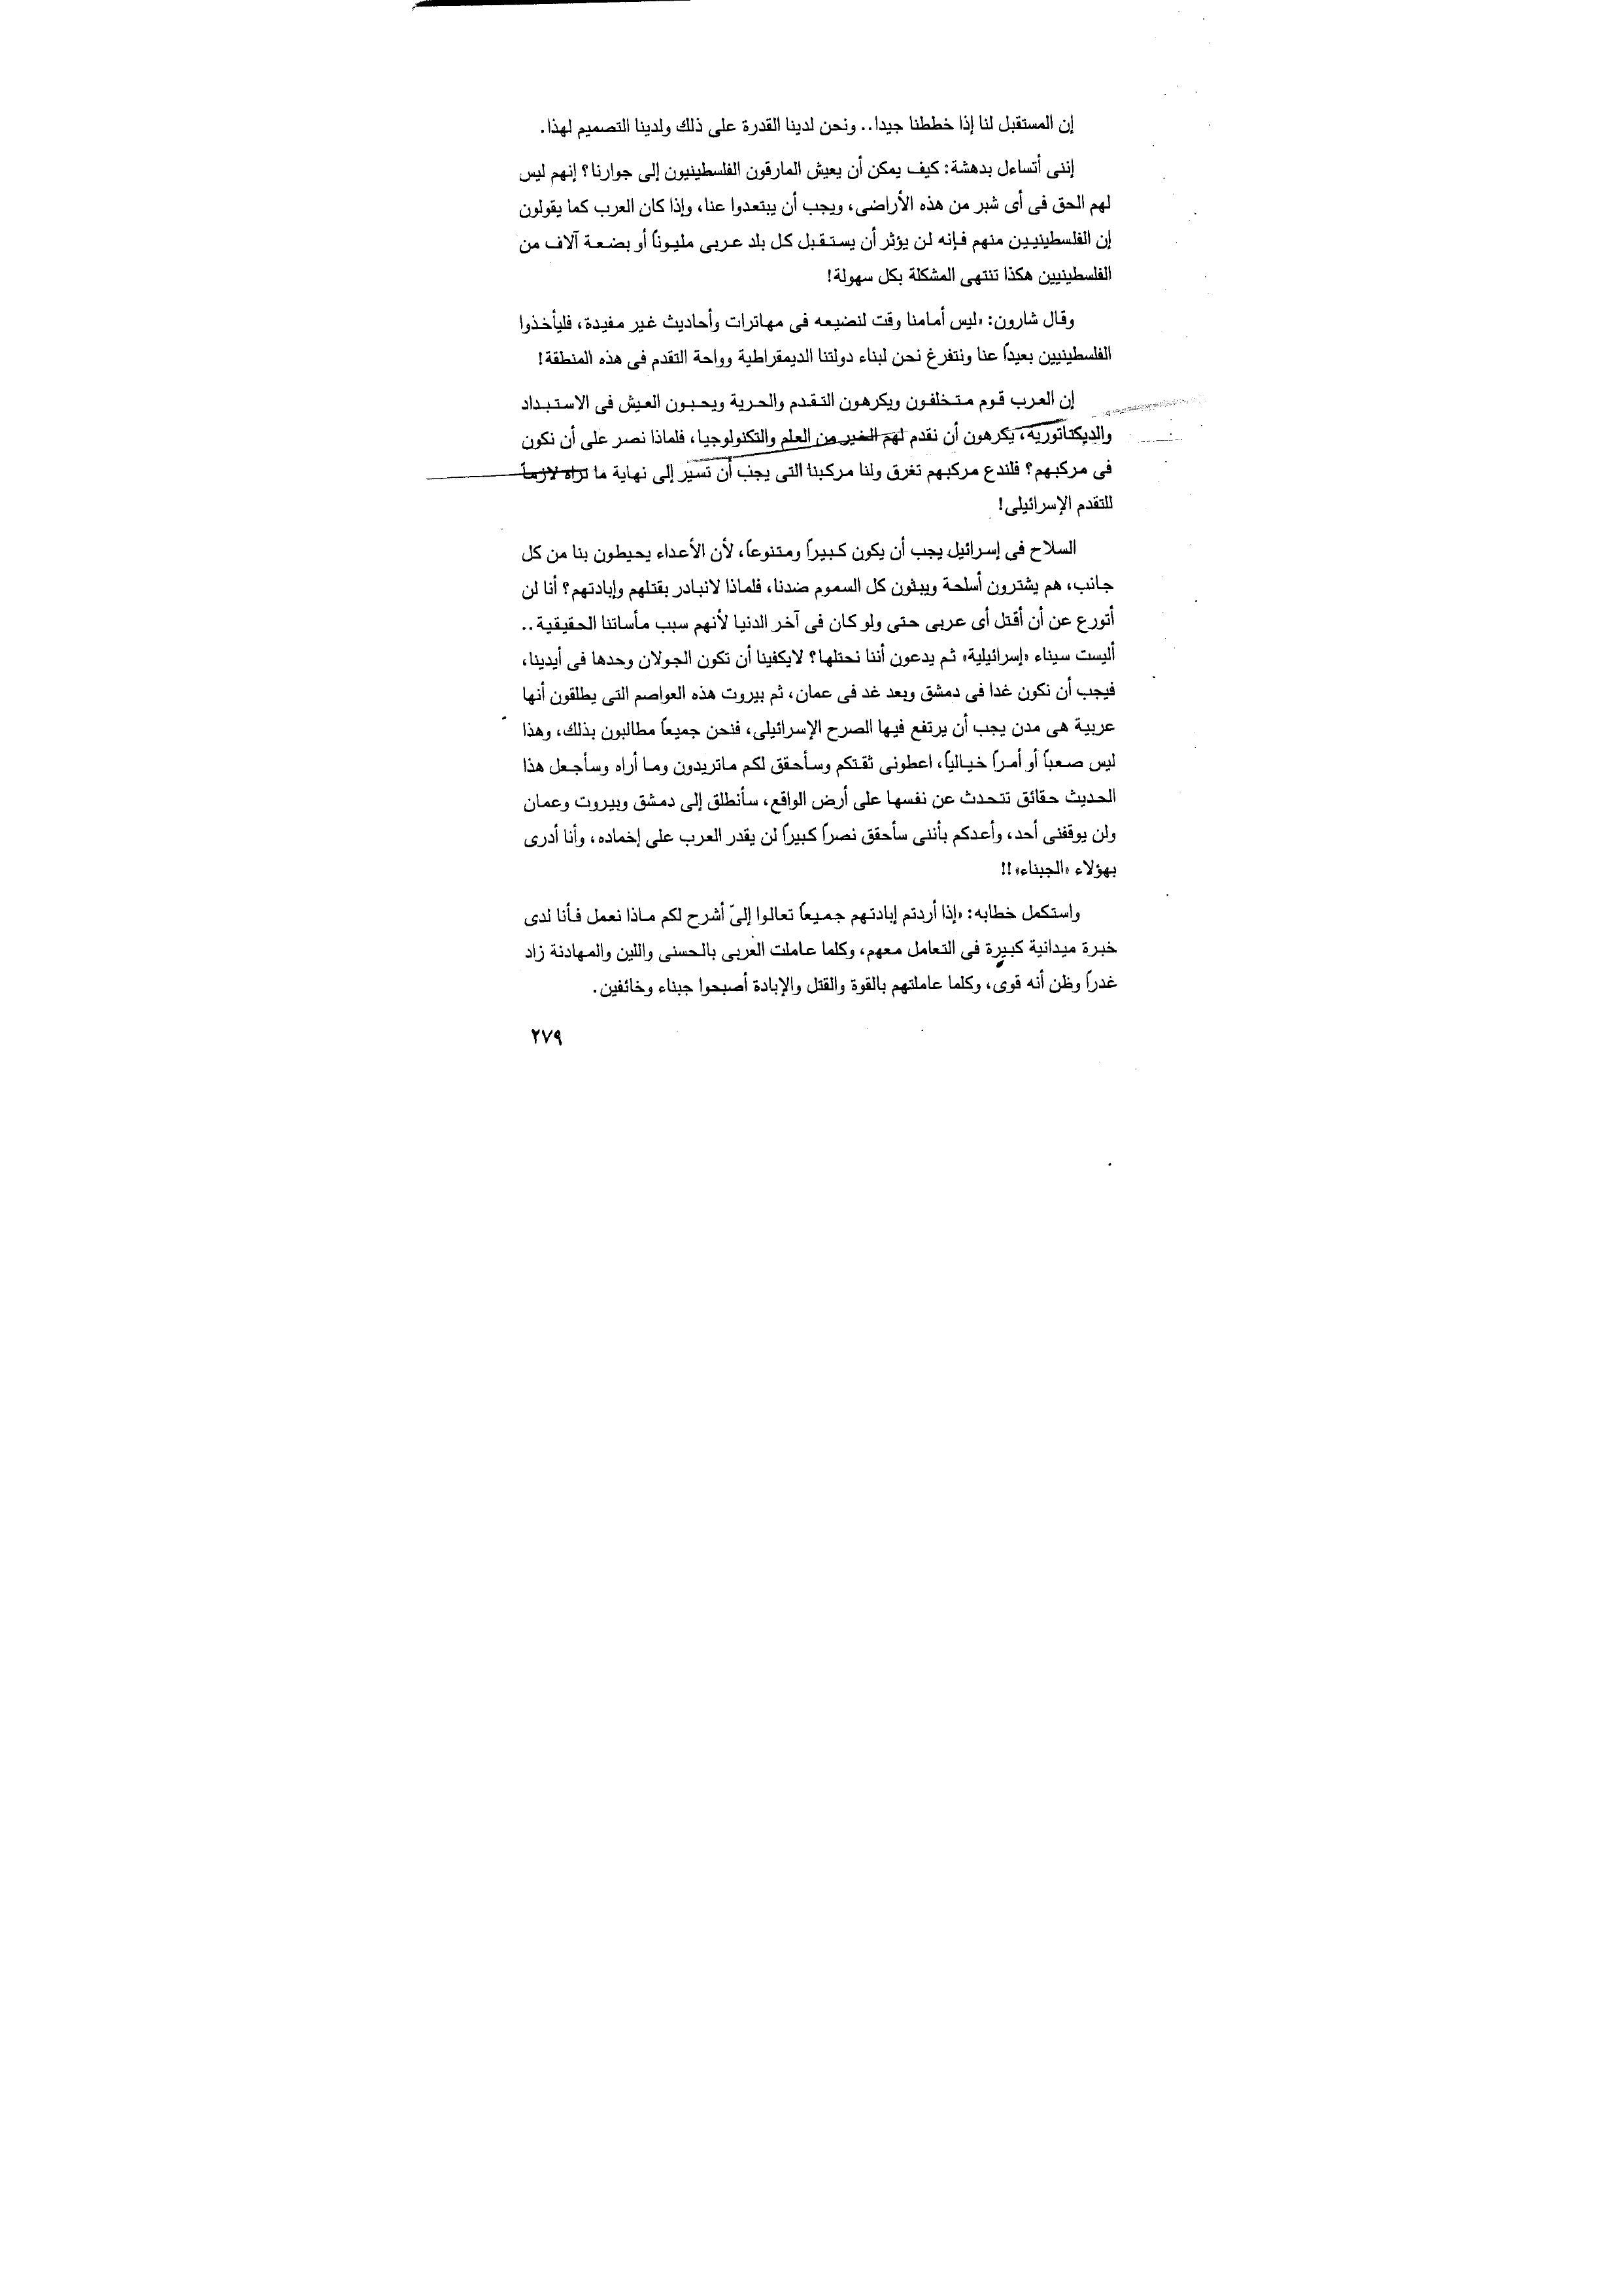 إن المستقبل لنا إذا خططنا جيدا.. ونحن لدينا القدرة على ذلك ولدينا التصميم لهذا.
إننى أتساءل بدهشة: كيف يمكن أن يعيش المارقون الفلسطينيون إلى جوارنا؟ إنهم ليس
لهم الحق فى أى شبر من هذه الأراضى، ويجب أن يبتعدوا عنا، وإذا كان العرب كما يقولون
إن الفلسطينيين منهم فإنه لن يؤثر أن يستقبل كل بلد عربى مليوناً أو بضعة آلاف من
الفلسطينيين هكذا تنتهى المشكلة بكل سهولة!
وقال شارون: «ليس أمامنا وقت لنضيعه فى مهاترات وأحاديث غير مفيدة، فليأخذوا
الفلسطينيين بعيداً عنا ونتفرغ نحن لبناء دولتنا الديمقراطية وواحة التقدم فى هذه المنطقة!
إن العرب قوم متخلفون ويكرهون التقدم والحرية ويحبون العيش فى الاستبداد
والديكتاتورية، يكرهون أن نقدم لهم الخير من العلم والتكنولوجيا، فلماذا نصر على أن نكون
فى مركبهم؟ فلندع مركبهم تغرق ولنا مركبنا التى يجب أن تسير إلى نهاية ما نراه لازماً
للتقدم الإسرائيلى!
السلاح فى إسرائيل يجب أن يكون كبيراً ومتنوعاً، لأن الأعداء يحيطون بنا من كل
جانب، هم يشترون أسلحة ويبثون كل السموم ضدنا، فلماذا لانبادر بقتلهم وإبادتهم؟ أنا لن
أتورع عن أن أقتل أى عربى حتى ولو كان فى آخر الدنيا لأنهم سبب مأساتنا الحقيقية..
أليست سيناء «إسرائيلية» ثم يدعون أننا نحتلها؟ لايكفينا أن تكون الجولان وحدها فى أيدينا،
فيجب أن نكون غدا فى دمشق وبعد غد فى عمان، ثم بيروت هذه العواصم التى يطلقون أنها
عربية هى مدن يجب أن يرتفع فيها الصرح الإسرائيلى، فنحن جميعاً مطالبون بذلك، وهذا
ليس صعباً أو أمراً خيالياً، اعطونى ثقتكم وسأحقق لكم ماتريدون وما أراه وسأجعل هذا
الحديث حقائق تتحدث عن نفسها على أرض الواقع، سأنطلق إلى دمشق وبيروت وعمان
ولن يوقفنى أحد، وأعدكم بأننى سأحقق نصراً كبيراً لن يقدر العرب على إخماده، وأنا أدرى
بهؤلاء «الجبناء»!!
واستكمل خطابه: «إذا أردتم إبادتهم جميعاً تعالوا إلىّ أشرح لكم ماذا نعمل فأنا لدى
خبرة ميدانية كبيرة فى التعامل معهم، وكلما عاملت العربى بالحسنى واللين والمهادنة زاد
غدراً وظن أنه قوى، وكلما عاملتهم بالقوة والقتل والإبادة أصبحوا جبناء وخائفين.
٢٧٩